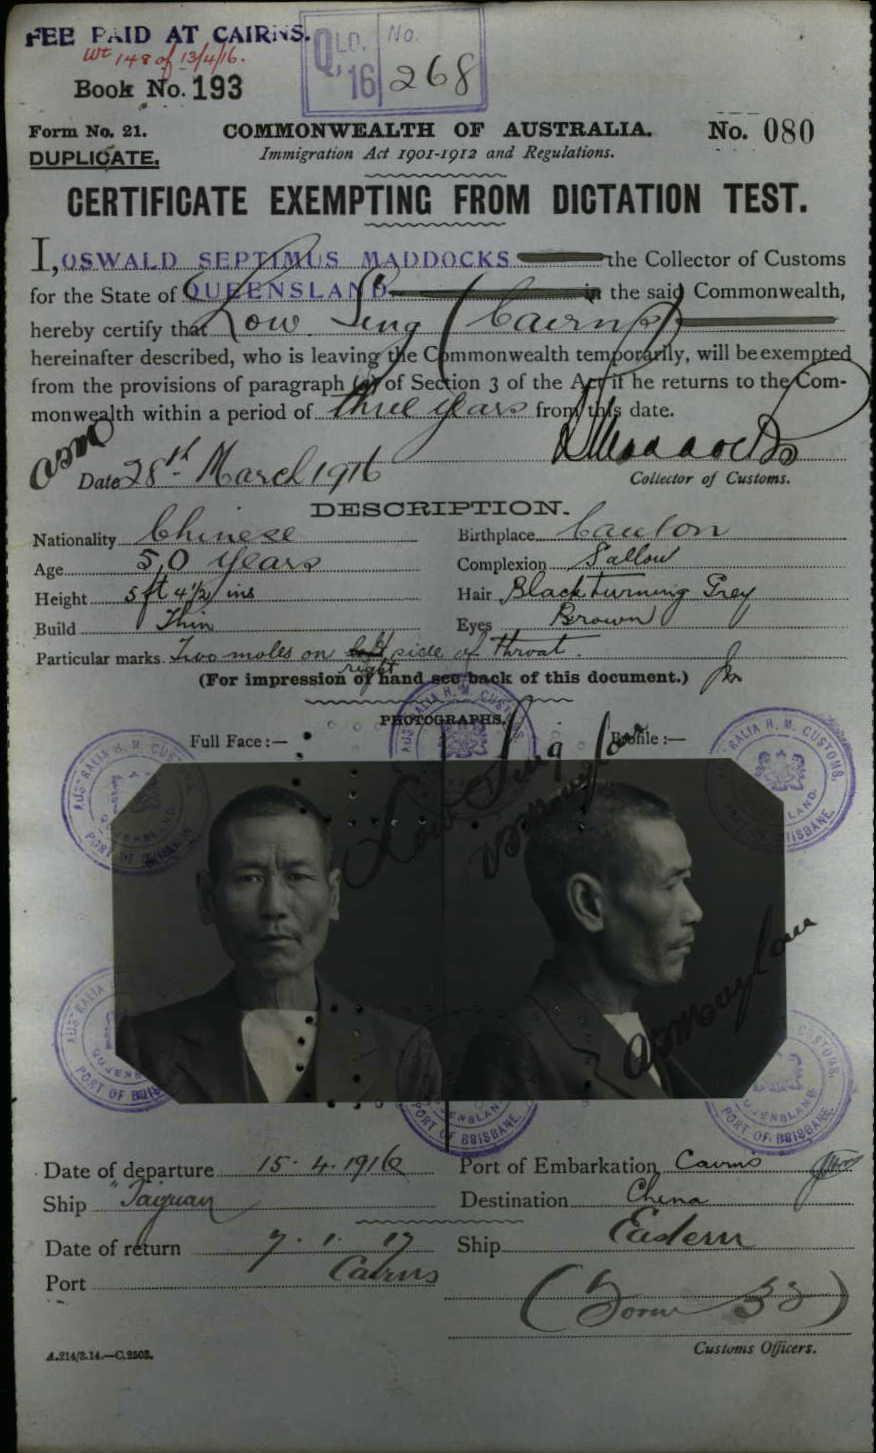 FEE PAID AT CAIRNS.
Wt 148 of 13/4/16.
QLD. No.
'16 268
Book No. 193
Form No. 21. COMMONWEALTH OF AUSTRALIA. No. 080
DUPLICATE. Immigration Act 1901-1912 and Regulations.
CERTIFICATE EXEMPTING FROM DICTATION TEST.
I, OSWALD SEPTIMUS MADDOCKS the Collector of Customs
for the State of QUEENSLAND in the said Commonwealth,
hereby certify that Low Sing (Cairns)
hereinafter described, who is leaving the Commonwealth temporarily, will be exempted
from the provisions of paragraph (a) of Section 3 of the Act if he returns to the Com-
monwealth within a period of three years from this date.
Date 28th March 1916
Collector of Customs.
DESCRIPTION.
Nationality Chinese Birthplace Canton
Age 50 Years Complexion Sallow
Height 5 ft 4½ ins Hair Black turning Grey
Build Thin Eyes Brown
Particular marks. Two moles on left side of throat.
right
(For impression of hand see back of this document.)
PHOTOGRAPHS.
Full Face :— Profile :—
Low Sing
AUSTRALIA H. M. CUSTOMS.
QUEENSLAND.
PORT OF BRISBANE.
Date of departure 15. 4. 1916 Port of Embarkation Cairns
Ship "Taiyuan Destination China
Date of return 7. 1. 17 Ship Eastern
Port Cairns
(Form 32)
Customs Officers.
A.214/3.14.—C.2503.